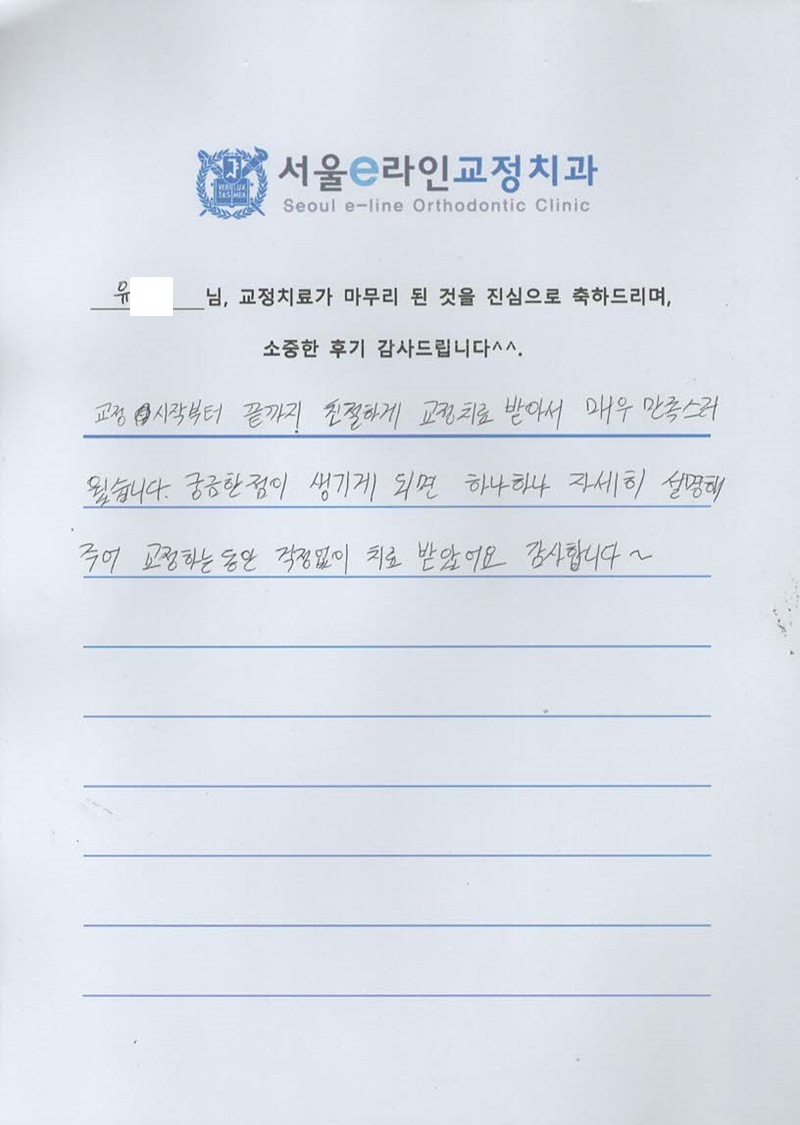 서울e라인교정치과
Seoul e-line Orthodontic Clinic
VERI LUX
TAS MEA
유 님, 교정치료가 마무리 된 것을 진심으로 축하드리며,
소중한 후기 감사드립니다^^.
교정 시작부터 끝까지 친절하게 교정치료 받아서 매우 만족스러
웠습니다. 궁금한점이 생기게 되면 하나하나 자세히 설명해
주어 교정하는동안 걱정없이 치료 받았어요 감사합니다~